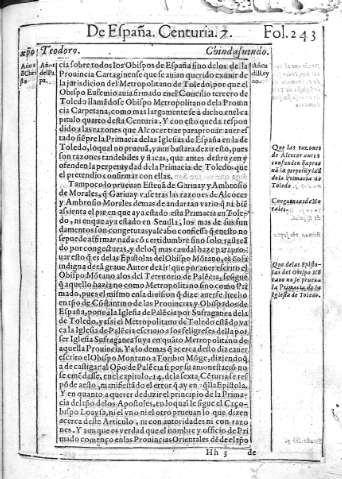 De España. Centuria. 7. Fol. 243
xp̃o. Teodoro. Chindasuindo.
cia sobre todos los Obispos de España sino de los de la
Prouincia Cartaginense que se auian querido exẽtar de
la jurisdicion del Metropolitano de Toledo, por que el
Obispo Eufemio auia firmado en el Concilio tercero de
Toledo llamãdose Obispo Metropolitano de la Prouin
cia Carpetana, como mas largamente se à dicho en el ca
pitulo quarto desta Centuria. Y con esto queda respon
dido a las razones que Alcocer trae para prouar auer es
tado siẽpre la Primacia de las Iglesias de España en la de
Toledo, lo qual no prueuã, y aun bastaua dezir esto, pues
son razones tan debiles y flacas, que antes destruyen y
ofenden la perpetuydad de la Primacia de Toledo que
el pretendio confirmar con ellas.
Tampoco lo prueuan Esteuã de Garibay y Ambrosio
de Morales, q̃ Garibay vsa tras las razones de Alcocer
y Ambrosio Morales demas de andar tan vario q̃ ni biẽ
assienta el
do, ni en que aya estado en Seuilla, los mas de sus fun
damentos son congeturas y al cabo confiessa q̃ en esto no
se puede afirmar nada cõ certidumbre sino solo rastreã
do por congeturas, y de lo q̃ mas caudal haze para prou
uar esto q̃ es de las Epistolas del Obispo Mõtano, es cosa
indigna de tã graue Autor dezir que por auer escrito el
Obispo Mõtano a los del Territorio de Palẽcia, se sigue
q̃ aquello hazia no como Metropolitano sino como Pri
mado, pues el mismo en la diuision q̃ dize auerse hecho
en tpõ de Cõstantino de las Prouincias y Obispados de
España, pone a la Iglesia de Palẽcia por Sufraganea de la
de Toledo, y assi el Metropolitano de Toledo estãdo va
ca la Iglesia de Palẽcia escriuio a los feligreses della por
ser Iglesia Sufraganea suya en quãto Metropolitano de
aquella Prouincia. Y a lo demas q̃ acerca desto dize auer
escrito el Obispo Montano a Toribio Mõge, diziendo q̃
a de castigar al Obispo de Palẽcia si por su amonestaciõ no
se emẽdasse, en el capitulo. 14. de la sexta Cẽturia escri
põ de aesto, manifestãdo el error q̃ ay en aq̃lla Epistola.
Y en quanto a querer deduzir el principio de la Prima
cia del tpõ de los Apostoles, en lo qual le sigue el
bispo Loaysa, ni el vno ni el otro prueuan lo que dizen
acerca deste Articulo, ni con autoridades ni con razo
nes. Y aunque es verdad que el nombre y oficio de Pri
mado començo en las Prouincias Orientales dẽde el tpõ
Hh 3 de
Que las razones
de Alcocer antes
confunden la
Primacia de
Toledo.
Congeturas de
Morales.
Que de las Episto
las del Obispo Mõ
tano no se prueua
la Primacia de la
Iglesia de Toledo.